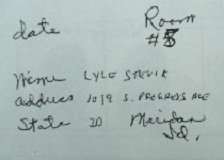 date Room
#5
Name LYLE STEVIK
address 1019 S. PROGRESS AVE
State ID Meridan
Id.